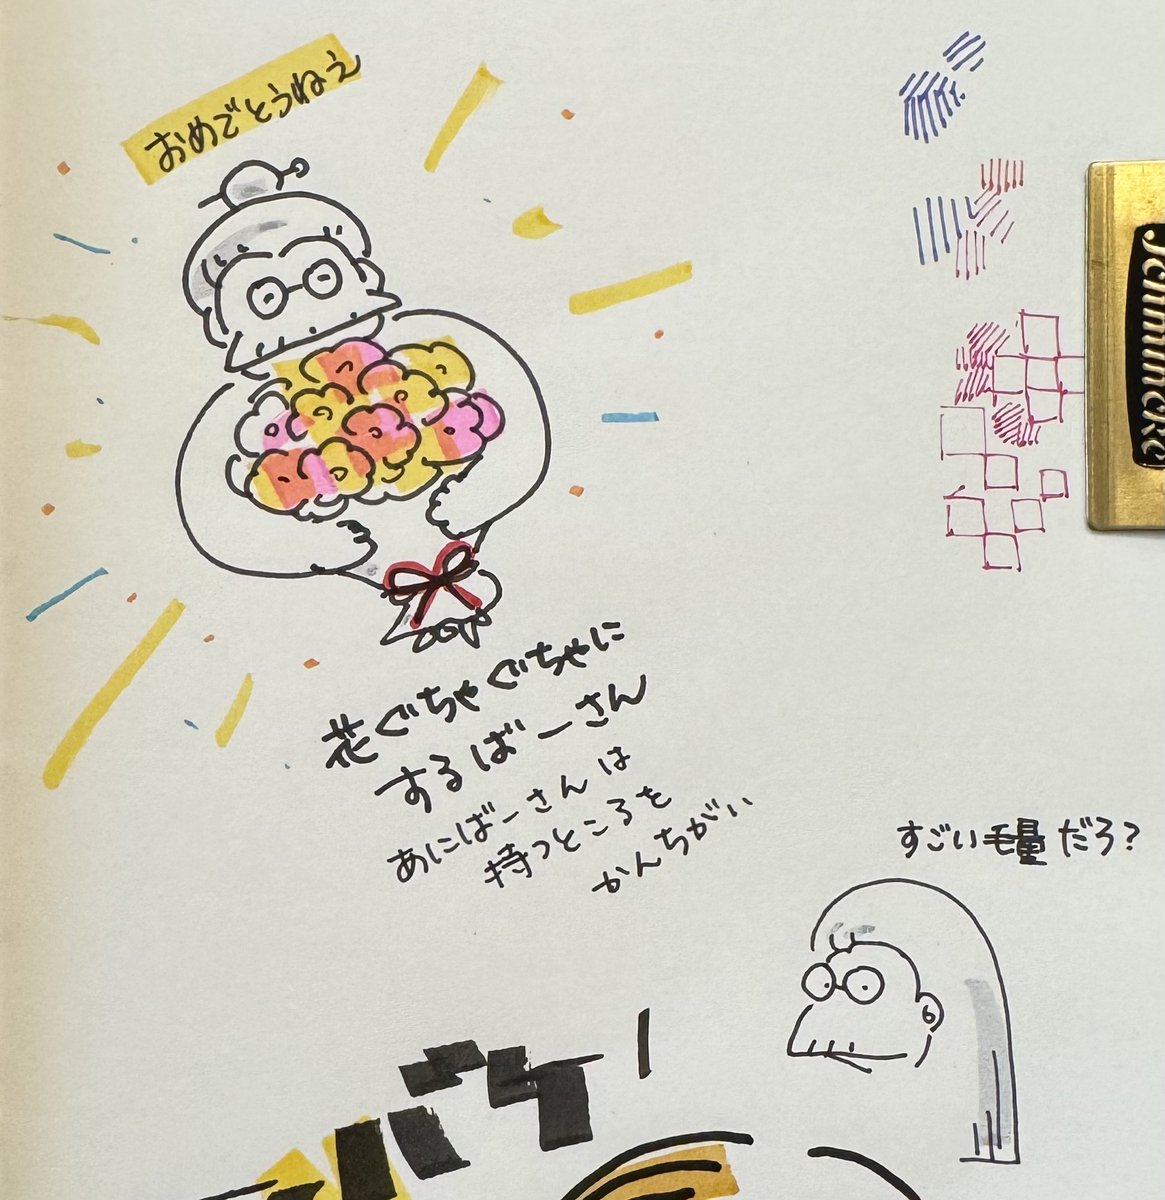 おめでとうねえ
花ぐちゃぐちゃに
するばーさん
あにばーさんは
持つところを
かんちがい
すごい毛量だろ?
Schmincke